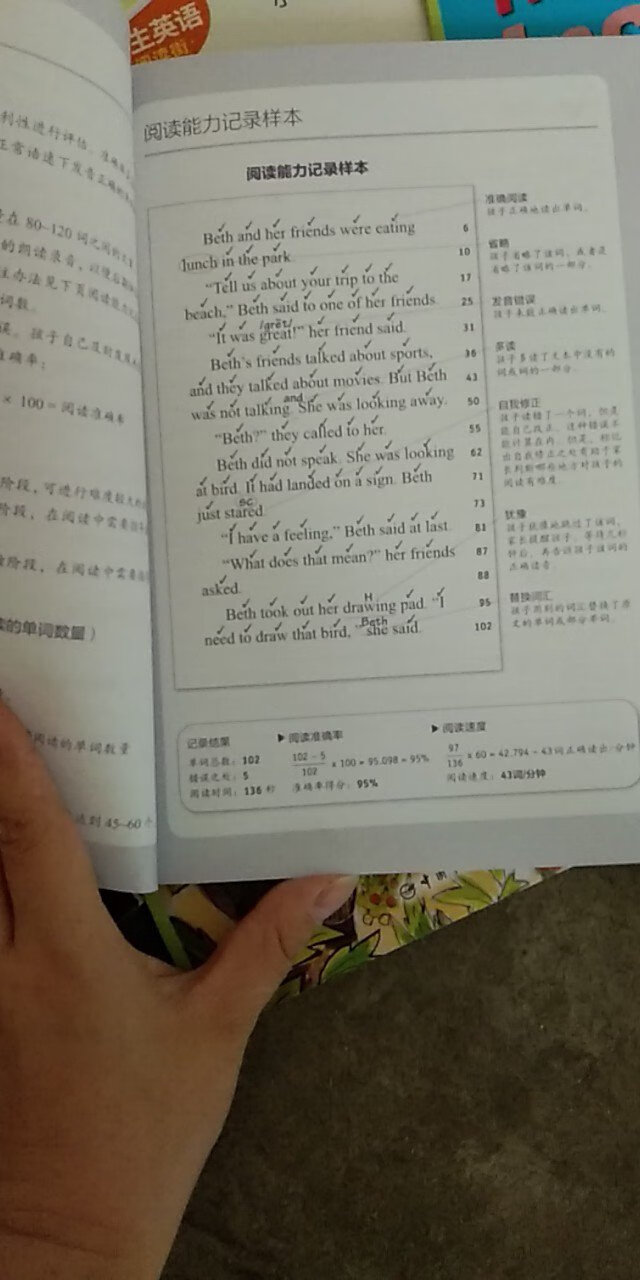 主英语
阅读街
利性进行评估。准确率
正常语速下发音正确的单
在 80~120 词之间的文章
的朗读录音，以便后期
注办法见下页阅读能力
词数。
误。孩子自己及时发现
准确率：
× 100 = 阅读准确率
阶段，可进行难度较大的
阶段，在阅读中需要
阶段，在阅读中需要
读的单词数量）
阅读的单词数量
达到 45~60 个
阅读能力记录样本
阅读能力记录样本
Beth and her friends were eating 6
lunch in the park. 10
"Tell us about your trip to the 17
beach," Beth said to one of her friends. 25
/gret/
"It was great!" her friend said. 31
Beth's friends talked about sports, 36
and they talked about movies. But Beth 43
and
was not talking. She was looking away. 50
"Beth?" they called to her. 55
Beth did not speak. She was looking 62
at bird. It had landed on a sign. Beth 71
sc
just stared. 73
"I have a feeling," Beth said at last. 81
"What does that mean?" her friends 87
asked. 88
H
Beth took out her drawing pad. "I 95
Beth
need to draw that bird," she said. 102
准确阅读
孩子正确地读出单词。
省略
孩子省略了该词，或者是
省略了该词的一部分。
发音错误
孩子未能正确读出单词。
多读
孩子多读了文本中没有的
词或词的一部分。
自我修正
孩子读错了一个词，但是
能自己改正。这种错误不
能计算在内。但是，标记
出自我修正之处有助于家
长判断哪些地方对孩子的
阅读有难度。
犹豫
孩子犹豫地跳过了该词，
家长提醒孩子，等待几秒
钟后，再告诉孩子该词的
正确读音。
替换词汇
孩子用别的词汇替换了原
文的单词或部分单词。
记录结果
单词总数：102
错误之处：5
阅读时间：136 秒
▶ 阅读准确率
102 - 5
102
× 100 = 95.098 ≈ 95%
准确率得分：95%
▶ 阅读速度
97
136
× 60 = 42.794 ≈ 43词正确读出/分钟
阅读速度：43词/分钟